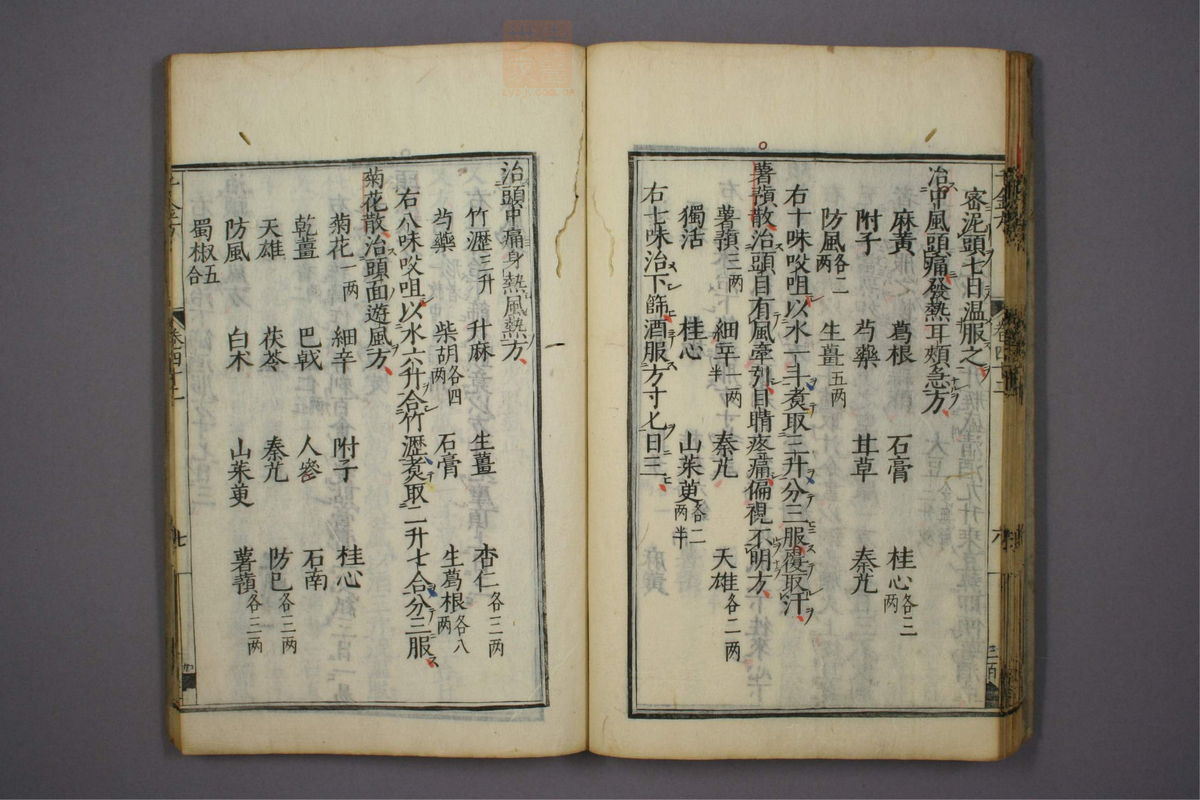 密泥頭七日温服之
治中風頭痛發熱耳頰急方
麻黄 葛根 石膏 桂心各三两
附子 芍藥 甘草 秦艽
防風各二两 生薑五两
右十味㕮咀以水一斗煮取三升分三服覆取汗
薯蕷散治頭目有風牽引目睛疼痛偏視不明方
薯蕷三两 細辛一两半 秦艽 天雄各二两
獨活 桂心 山茱萸各二两半
右七味治下篩酒服方寸匕日三
治頭中痛身熱風熱方
竹瀝三升 升麻 生薑 杏仁各三两
芍藥 柴胡各四两 石膏 生葛根各八两
右八味㕮咀以水六升合竹瀝煮取二升七合分三服
菊花散治頭面遊風方
菊花一两 細辛 附子 桂心
乾薑 巴戟 人參 石南
天雄 茯苓 秦艽 防巳各三两
防風 白术 山茱萸 薯蕷各三两
蜀椒五合
七